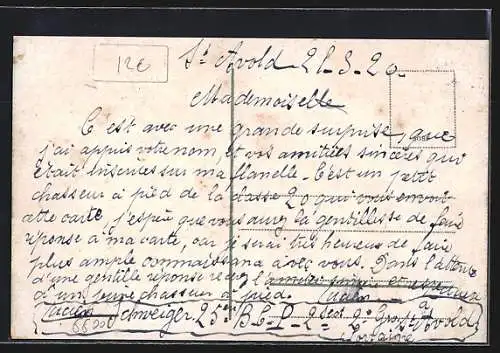 12€
St Avold 21-3-20
Mademoiselle
C'est avec une grande surprise que
j'ai appris votre nom, et vos amitiées sincères qui
était inscrites sur ma flanelle. C'est un petit
chasseur à pied de la classe 20 qui vous envoit
cette carte. j'espère que vous aurez la gentillesse de faire
réponse a ma carte, car je serai très heureux de faire
plus ample connaissance avec vous. Dans l'attente
d'une gentille réponse recevez l'
d'un jeune chasseur à pied.
Schweiger 25e B.C.P. 2e à St Avold
66000 Lorraine